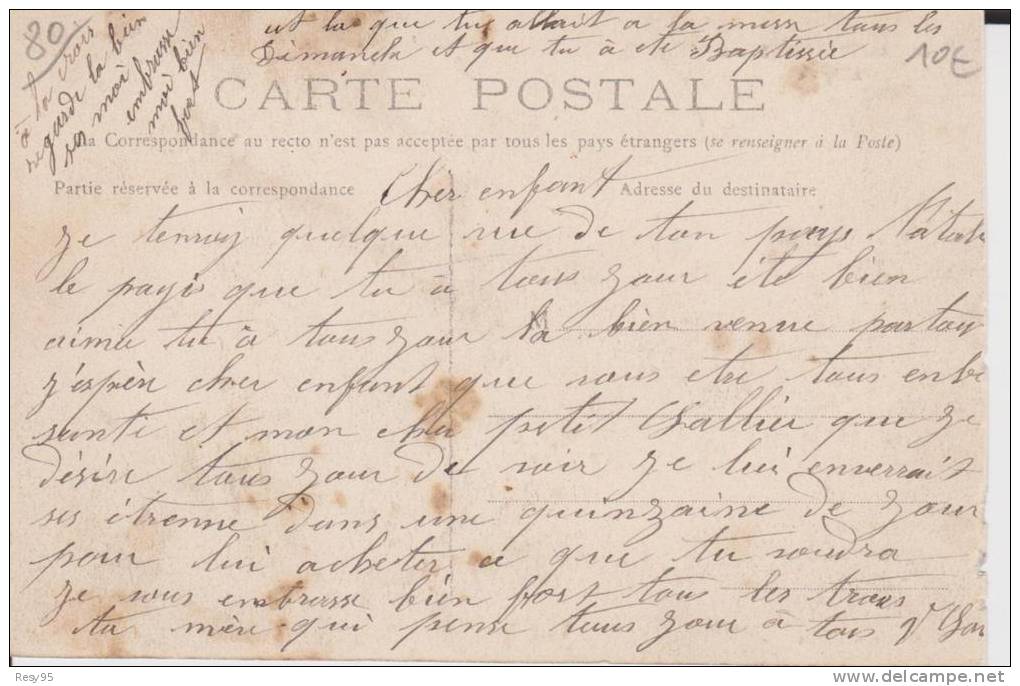 80
10€
et la que tu allait a la messe tous les
Dimanch et que tu à ete Baptissée
à la crois
regarde la bien
embrasse
moi bien
fort
CARTE POSTALE
La Correspondance au recto n'est pas acceptée par tous les pays étrangers (se renseigner à la Poste)
Partie réservée à la correspondance
Adresse du destinataire
Cher enfant
Je tenvoy quelque vue de ton pays Natal
le pays que tu à tous jour été bien
aimé tu à tous jour la bien venue partou
j'espère cher enfant que vous etre tous enbo
santé et mon cher petit que je
désire tous jour de voir je lui enverrait
ses étrenne dans une quinzaine de jour
pour lui acheter ce que tu voudra
Je vous embrasse bien fort tous les trois
ta mère qui pense tous jour à tois Vve
Resy95
delcampe.net